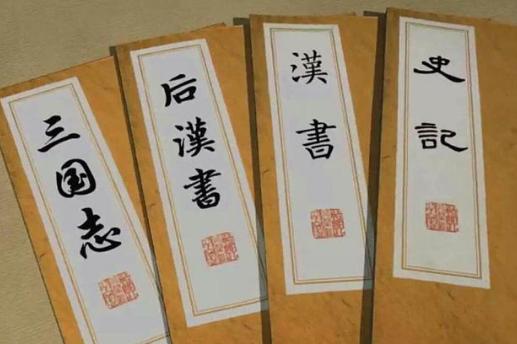 史記
漢書
后漢書
三国志